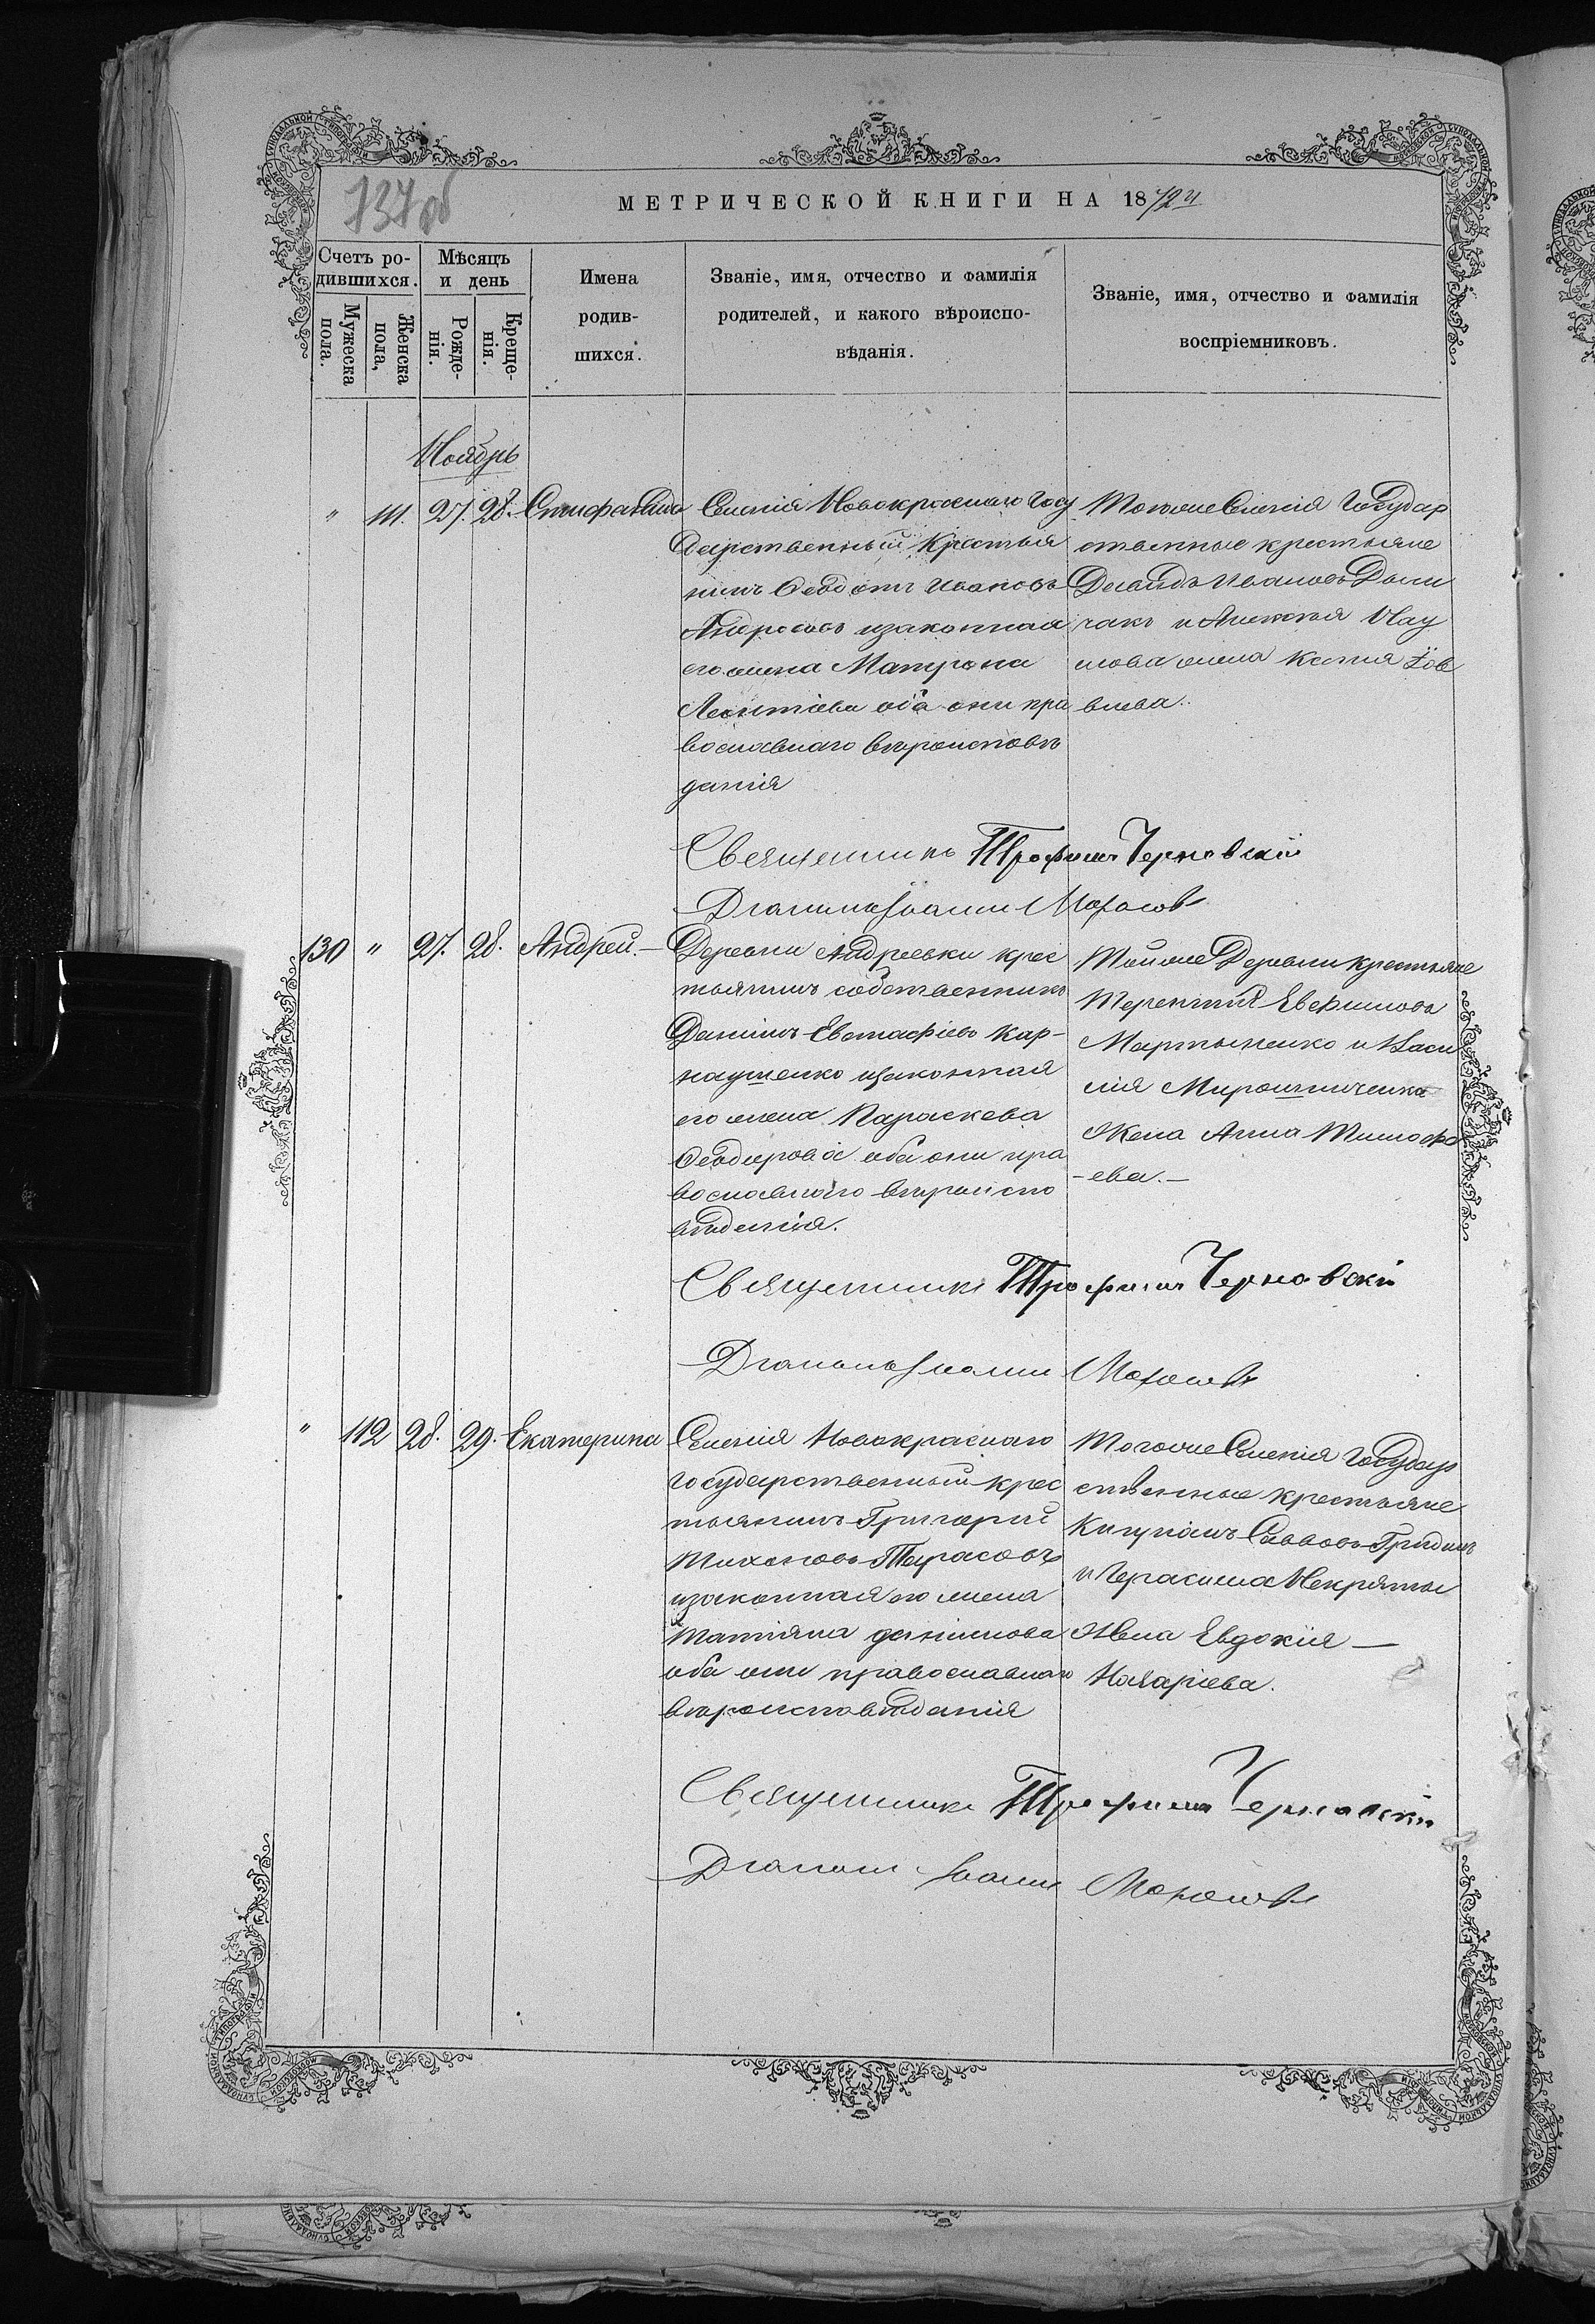 737 об
МЕТРИЧЕСКОЙ КНИГИ НА 1872 й
Счетъ ро-
дившихся.
Мужеска
пола.
Женска
пола,
Мѣсяцъ
и день
Рожде-
нія.
Креще-
нія.
Имена
родив-
шихся.
Званіе, имя, отчество и фамилія
родителей, и какого вѣроиспо-
вѣданія.
Званіе, имя, отчество и фамилія
воспріемниковъ.
Ноябрь
" 111. 27. 28.
Селенія Новокраснаго Госу
дарственный Крестья
нинъ Ѳеодотъ Ивановъ
Андросовъ изаконная
его жена Матрона
Леонтіева оба они пра
вославнаго вѣроисповѣ
данія
Тогоже Селенія Государ
ственные крестьяне
Давидъ Ивановъ
чакъ и
жена Ксенія Іов
влева.
Священникъ Трофимъ Черновскій
Діаконъ Іоаннъ
130 " 27. 28. Андрей.—
Деревни Андреевки крес
тьянинъ собственникъ
Даніилъ Евстафіевъ Кар-
наушенко изаконная
его жена Параскева
Ѳеодорова оба они пра
вославнаго вѣроиспо
вѣданія.
Тойже Деревни крестьяне
Терентій Евфимовъ
Мартыненко и Васи
лія Мирошниченка
Жена Анна Тимофе
-ева.—
Священникъ Трофимъ Черновскій
Діаконъ Іоаннъ
" 112 28. 29. Екатерина
Селенія Новокраснаго
государственный крес
тьянинъ Григорій
Тихоновъ Тарасовъ
изаконная его жена
Татіяна даніилова
оба они православнаго
вѣроисповѣданія
Тогоже Селенія Государ
ственные крестьяне
Кипріанъ Саввовъ Гридинъ
и Герасима
Жена Евдокія —
Назаріева.
Священникъ Трофимъ Черновскій
Діаконъ Іоаннъ